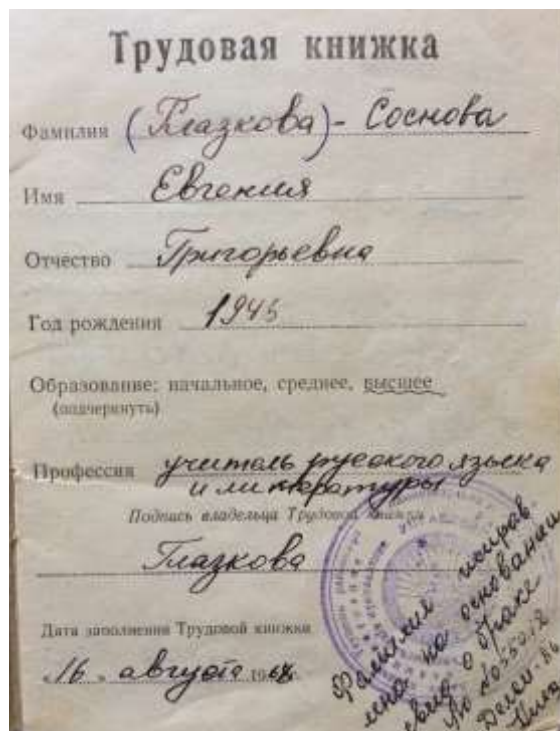 Трудовая книжка
Фамилия (Глазкова)- Соснова
Имя Евгения
Отчество Григорьевна
Год рождения 1945
Образование: начальное, среднее, высшее
(подчеркнуть)
Профессия учитель русского языка
и литературы
Подпись владельца Трудовой книжки
Глазкова
Дата заполнения Трудовой книжки
"16" августа 1968
Фамилия исправ-
лена на основании
о браке